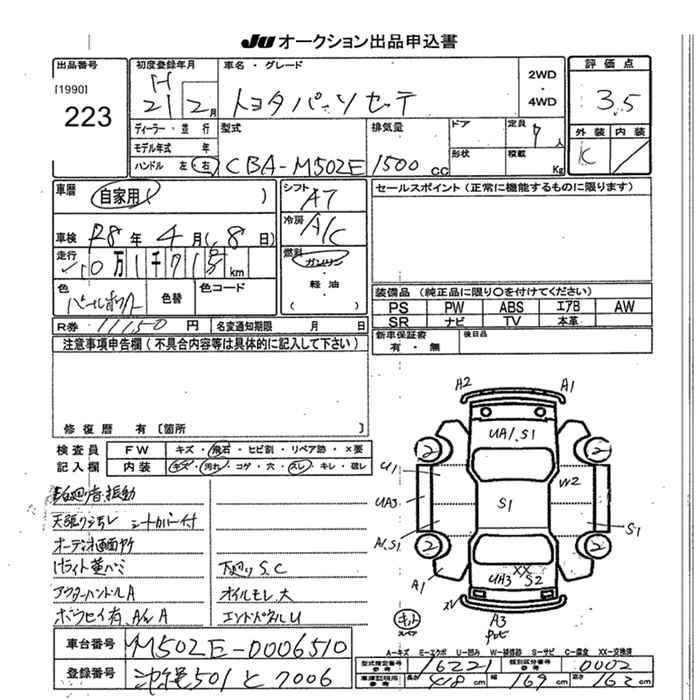 JU オークション出品申込書
出品番号
[1990]
223
初度登録年月
H
21 2月
車名・グレード
トヨタパッソセッテ
2WD
・
4WD
評価点
3.5
外装 内装
K
ディーラー・並行
モデル年式 年
ハンドル 左・右
型式
CBA-M502E
排気量
1500cc
ドア
形状
定員
7人
積載
Kg
車歴
自家用 ( )
シフト
AT
冷房
A/C
燃料
ガソリン
・
軽油
・
( )
セールスポイント(正常に機能するものに限ります)
車検 R8年 4月(8日)
走行
10万1千718km
色
色替
色コード
R券 11150円
名変通知期限 月 日
装備品(純正品に限り〇を付けてください)
PS PW ABS エアB AW
SR ナビ TV 本革
新車保証書
有・無
後日品
注意事項申告欄(不具合内容等は具体的に記入して下さい)
修復歴 有〔箇所 〕
検査員
記入欄
FW キズ・飛石・ヒビ割・リペア跡・×要
内装 キズ・汚れ・コゲ・穴・スレ・キレ・破レ
天張り汚れ シートカバー付
オーディオ画面
ライト黄バミ
アウターハンドルA
下廻りS.C
オイルモレ大
エンドパネルU
A2 A1
UA1.S1
2 2
U1
W2
UA3
S1
A1.S1
S1
2 2
A1
XX
UA3 S2
XV
A3
キット
スペア
A-キズ E-エクボ U-凹み W-補修跡 S-サビ C-腐食 XX-交換済
車台番号 M502E-0006510
登録番号 沖縄501と7006
型式指定番号
参考
16221
類別区分番号
参考
0002
車庫証明用
参考
長さ 418cm 幅 169cm 高さ 162cm